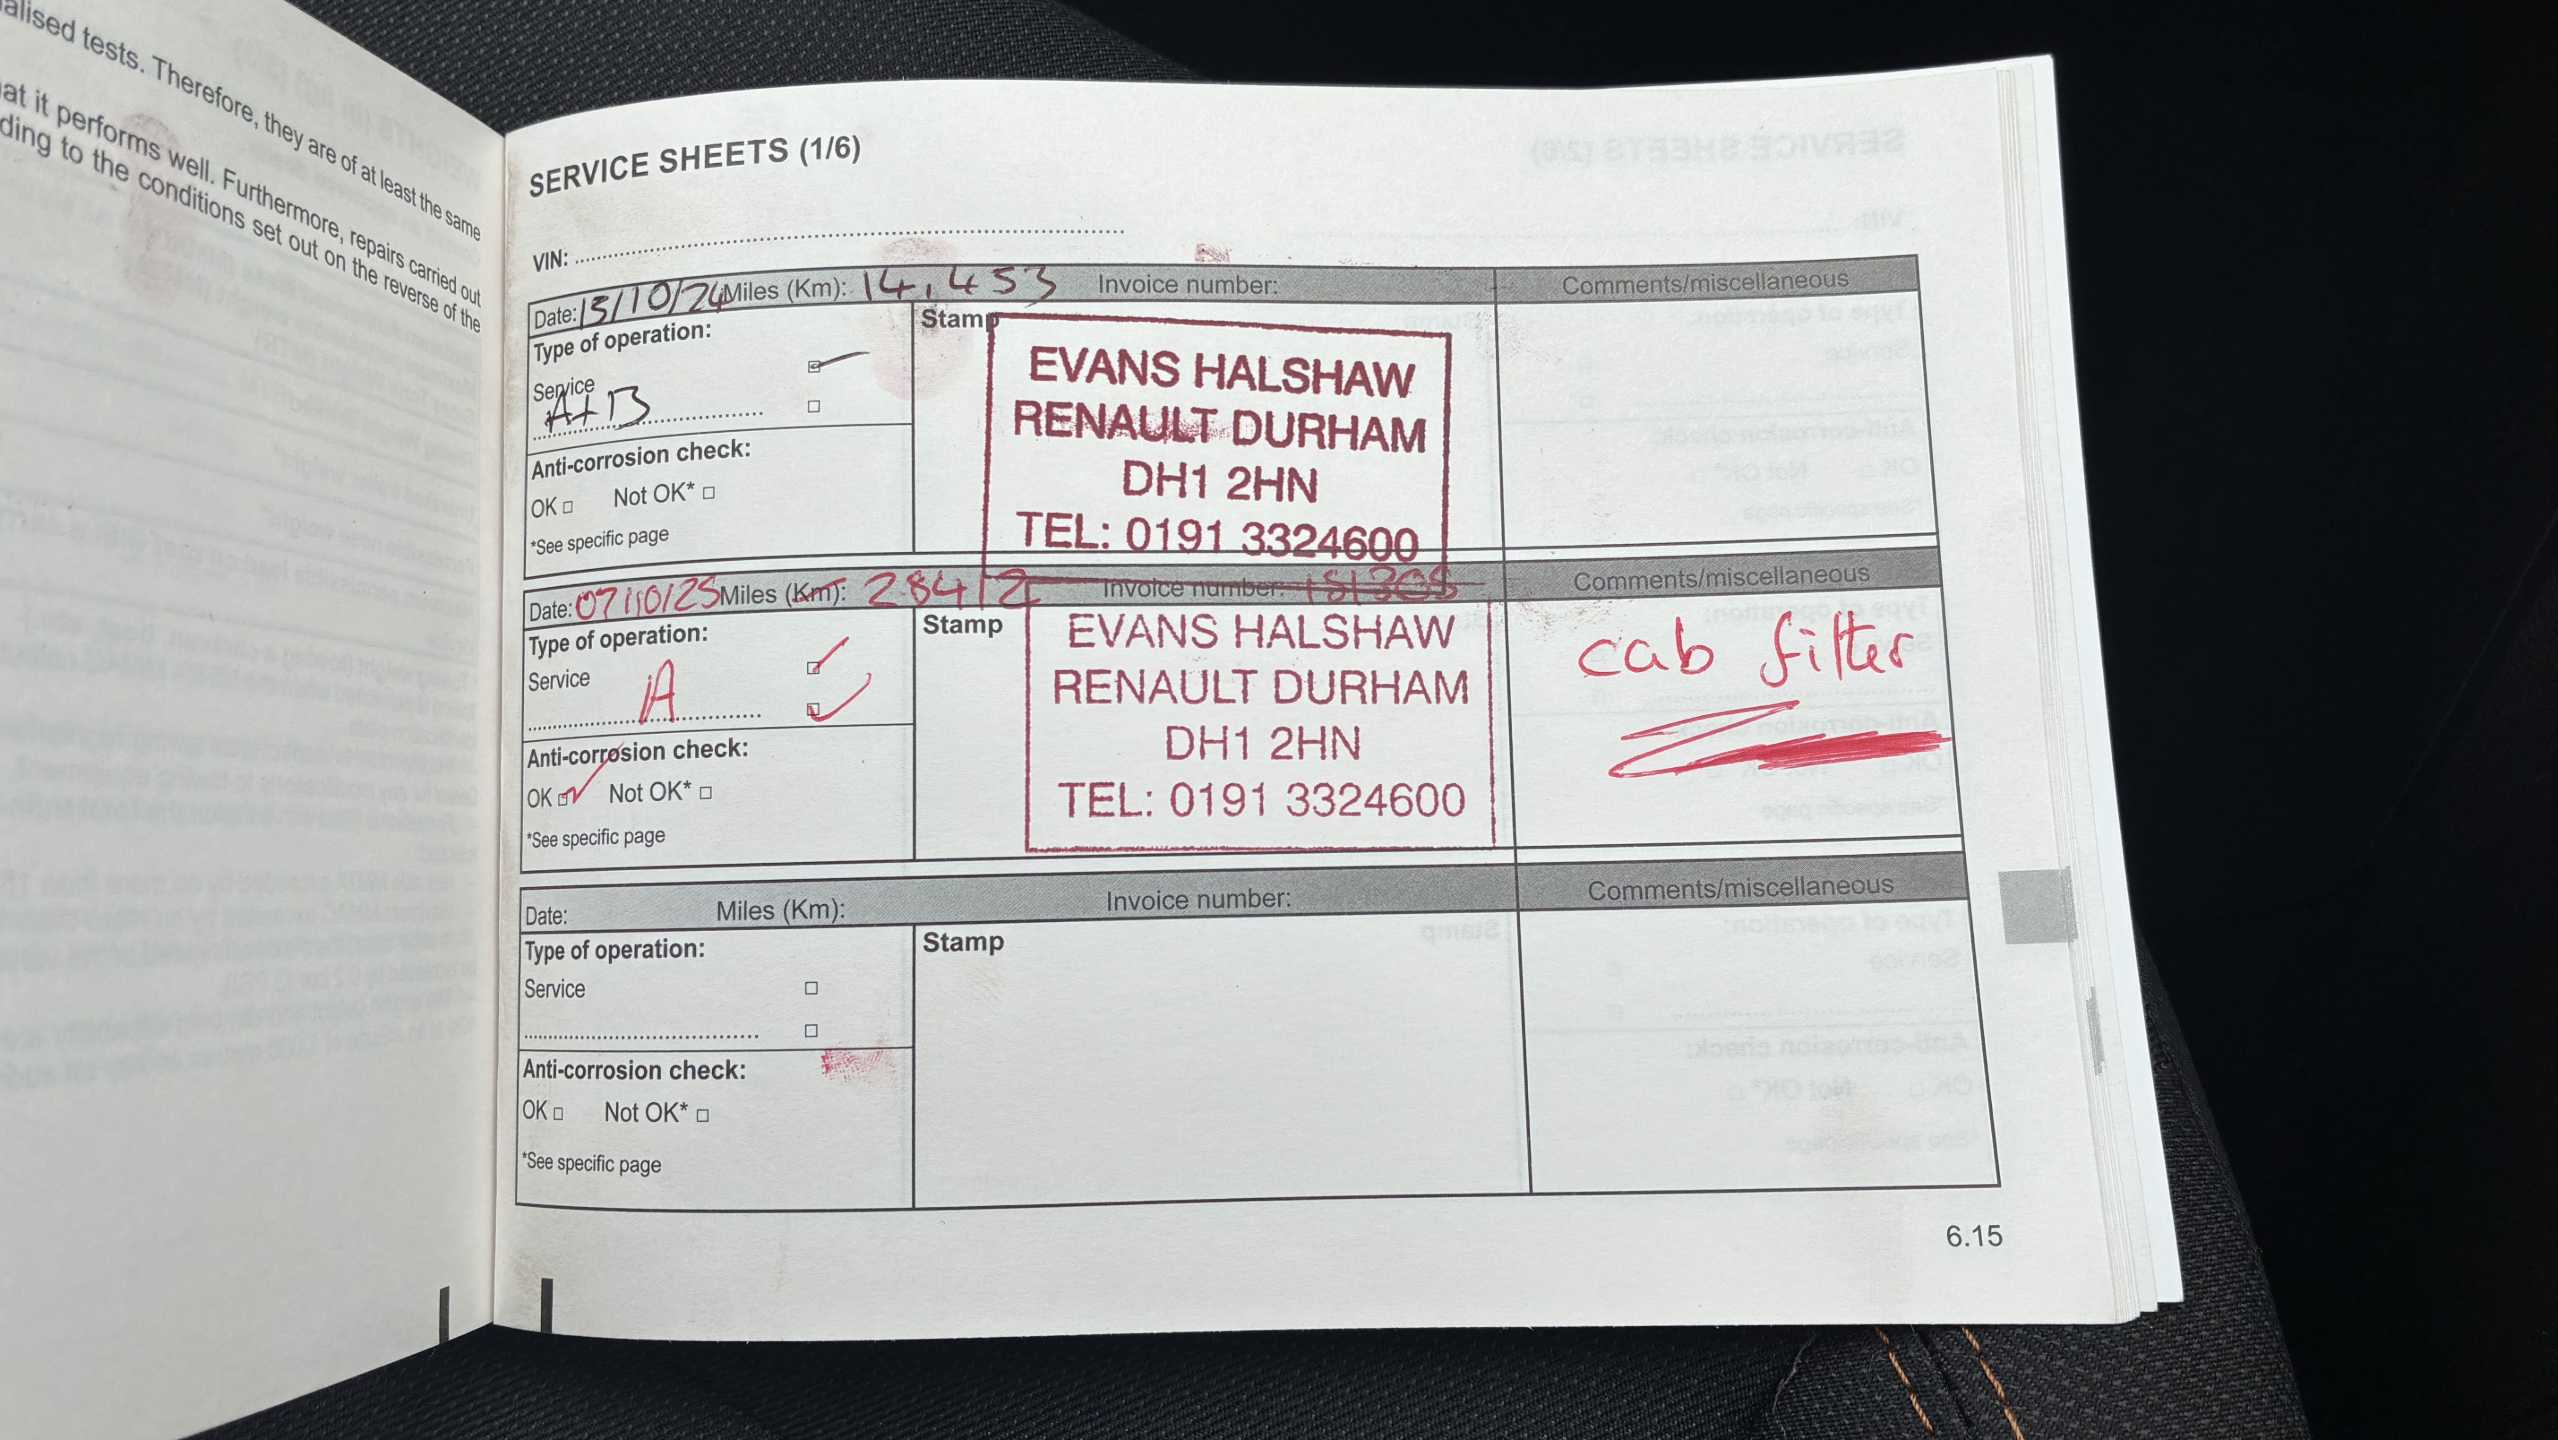 alised tests. Therefore, they are of at least the same
at it performs well. Furthermore, repairs carried out
ding to the conditions set out on the reverse of the
SERVICE SHEETS (1/6)
VIN:
Date: 15/10/24 Miles (Km): 14,453 Invoice number: Comments/miscellaneous
Type of operation:
Service
A+B
Anti-corrosion check:
OK Not OK*
*See specific page
Stamp
EVANS HALSHAW
RENAULT DURHAM
DH1 2HN
TEL: 0191 3324600
Date: 07/10/25 Miles (Km): 28412 Invoice number: 181308 Comments/miscellaneous
Type of operation:
Service
A
Anti-corrosion check:
OK Not OK*
*See specific page
Stamp
EVANS HALSHAW
RENAULT DURHAM
DH1 2HN
TEL: 0191 3324600
cab filter
Date: Miles (Km): Invoice number: Comments/miscellaneous
Type of operation:
Service
Anti-corrosion check:
OK Not OK*
*See specific page
Stamp
6.15